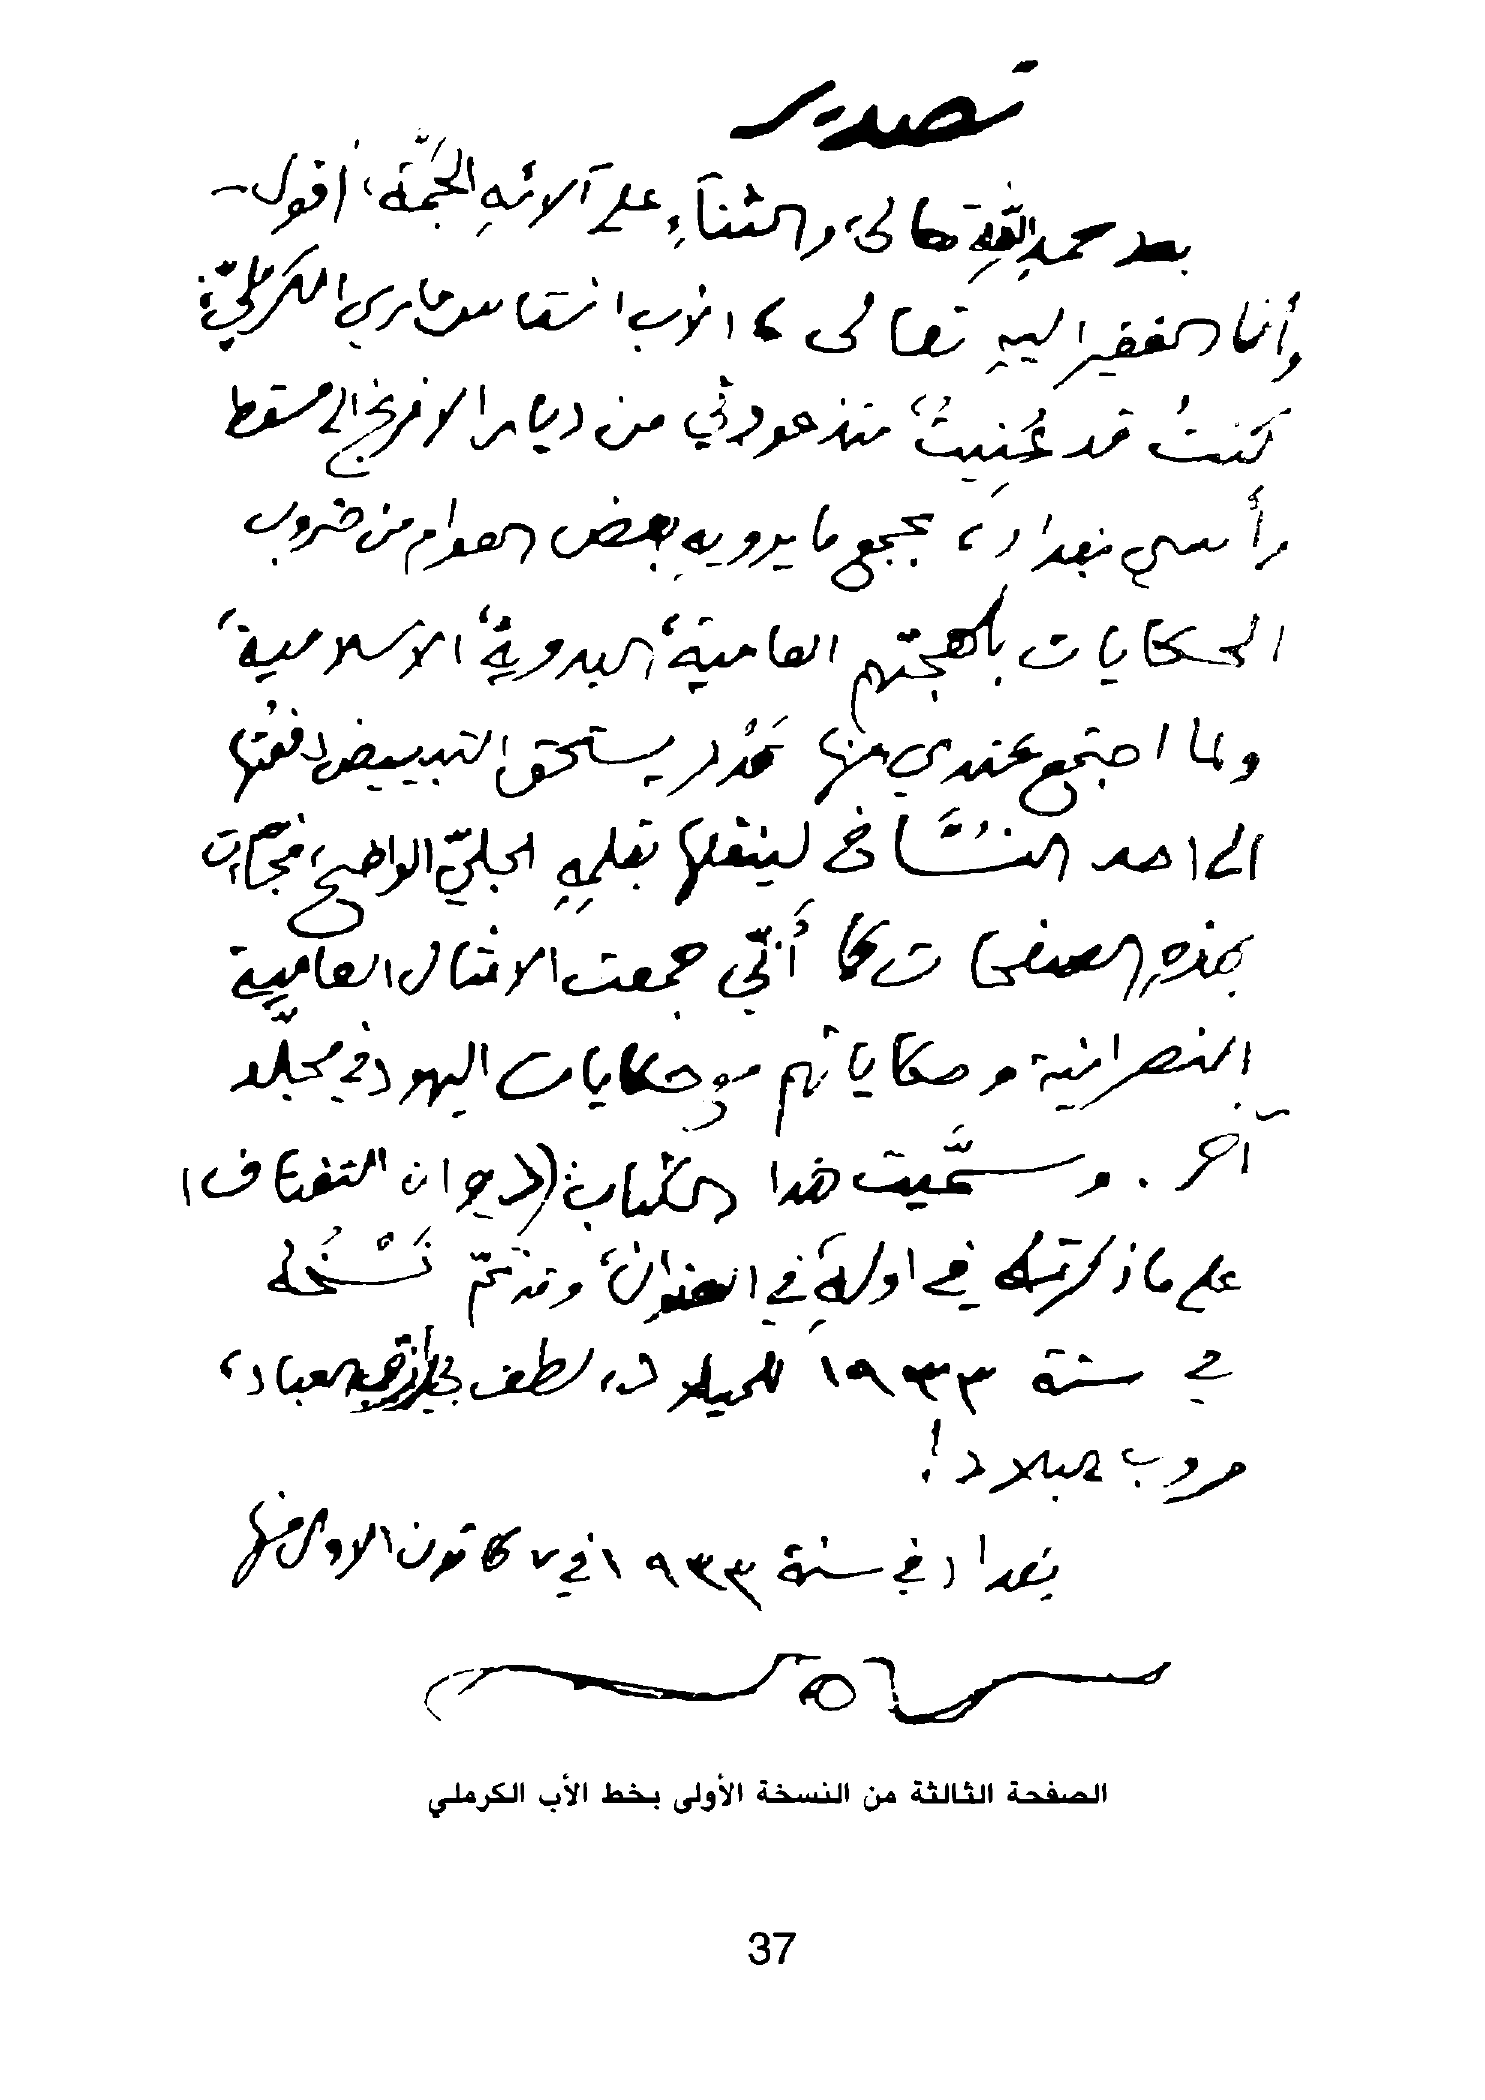 تصدير
بعد حمد الله تعالى، والثناءِ على آلائهِ الجَمَّة، أقول -
وأنا الفقير اليهِ تعالى، الأب انستاس ماري الكرمليّ:
كنتُ قد عُنِيتُ، منذ عودتي من ديار الافرنج الى مسقط
رأسي بغداد، بجمع ما يرويهِ بعض العوام من ضروب
الحكايات بلهجتهم العامية، البدوية، الاسلامية،
ولما اجتمع عندي منها قَدْر يستحق التبييض دفعتُها
الى احد النُسَّاخ لينقلها بقلمِهِ الجليّ الواضح، فجاءَت
بهذهِ الصفحات كما أَنّي جمعت الامثال العامية
النصرانية وحكاياتهم وحكايات اليهود في مجلّد
آخر. وسمَّيت هذا الكتاب: (ديوان التفتاف)
على ما ذكرته في اولهِ في العنوان، وقد تمّ نَسْخُه
في سنة ١٩٣٣ للميلاد، لطف العباد،
ورب البلاد!
بغداد في سنة ١٩٣٣ في ٧ كانون الاول منها
الصفحة الثالثة من النسخة الأولى بخط الأب الكرملي
37